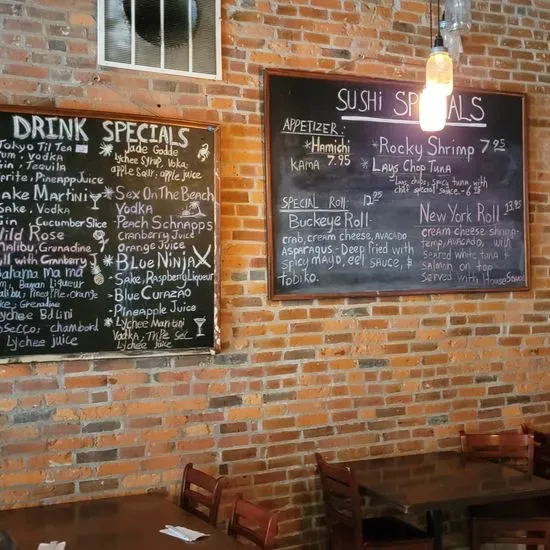 DRINK SPECIALS
Tokyo Til Tea
Rum, Vodka
Gin, Tequila
Sprite, Pineapp Juice
Sake Martini
Sake, Vodka
Gin, Cucumber Slice
Wild Rose
Malibu, Grenadine
Bahama mama
Rum, Banana Liqueur
Malibu, Pineapple, Orange
Juice, Grenadine
Lychee Bellini
Prosecco, chambord
Lychee juice
Jade Godde
Lychee Syrup, Voka,
apple sour, apple juice
Sex On The Beach
Vodka
Peach Schnapps
Cranberry Juice
Orange Juice
Blue Ninja
Sake, Raspberry Liqueur
Blue Curazao
Pineapple Juice
Lychee Martini
Vodka, Triple Sec
Lychee Juice
SUSHI SPECIALS
APPETIZER:
*Hamichi
KAMA 7.95
*Rocky Shrimp 7.95
*Lays Chop Tuna
Lays chips, spicy tuna with
chef special sauce
SPECIAL ROLL:
Buckeye Roll:
crab, cream cheese, AVOCADO
Asparagus - Deep fried with
spicy mayo, eel sauce, &
Tobiko.
New York Roll 13.95
cream cheese, shrimp-
temp, AVOCADO, with
seared white tuna &
salmon on top
served with House Sauce!